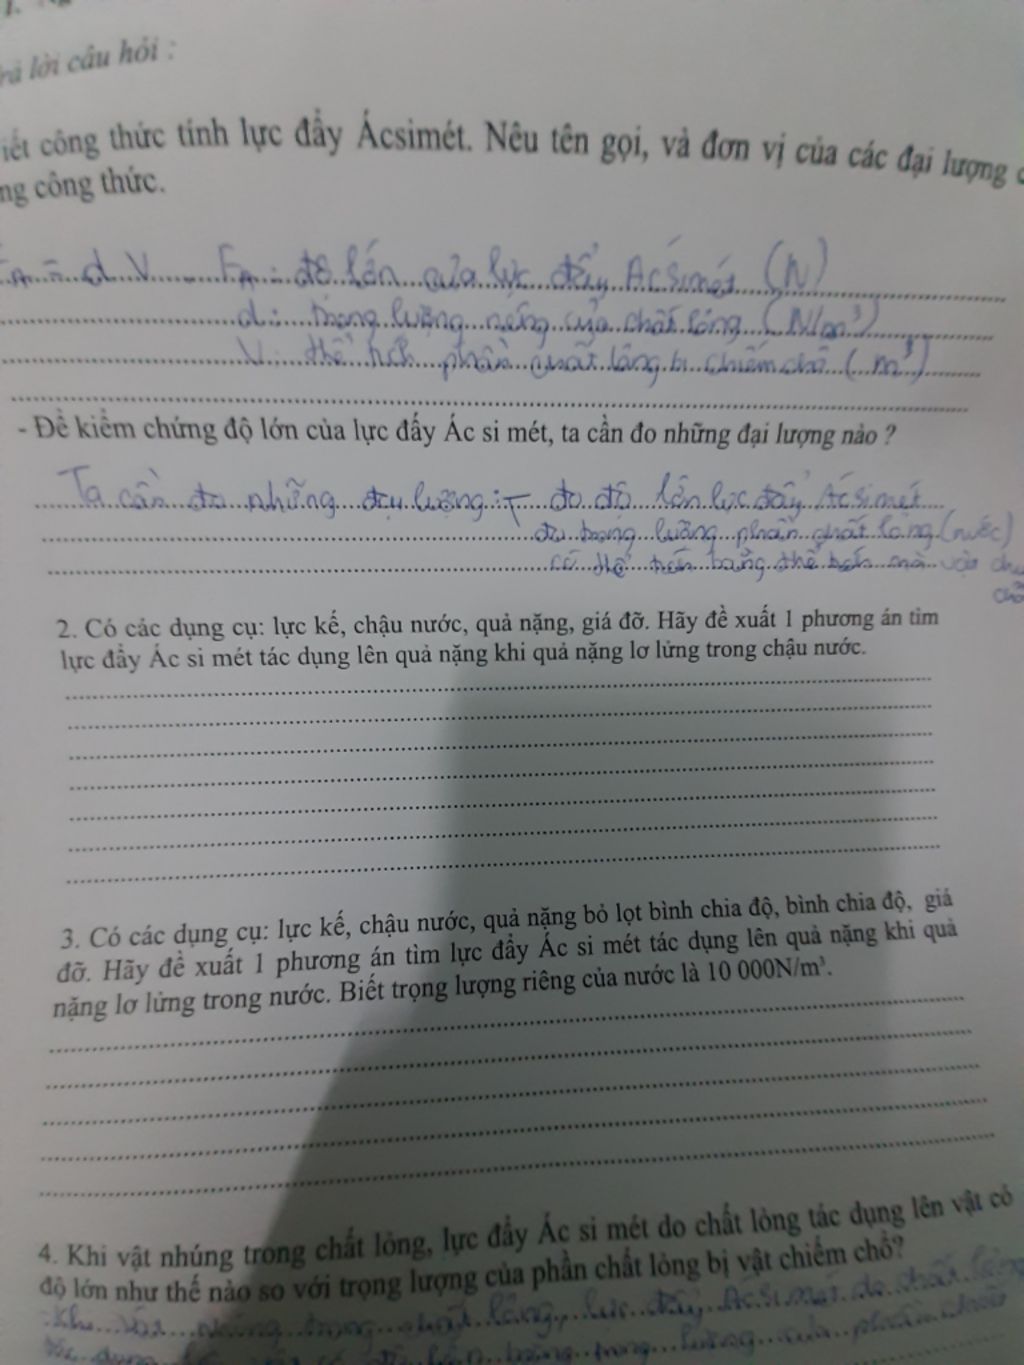 lời câu hỏi :
công thức tính lực đẩy Ácsimét. Nêu tên gọi, và đơn vị của các đại lượng
công thức.
= d.V FA: độ lớn của lực đẩy Ácsimét (N)
d: trọng lượng riêng của chất lỏng (N/m³)
V: thể tích phần chất lỏng bị chiếm chỗ (m³)
- Để kiểm chứng độ lớn của lực đẩy Ác si mét, ta cần đo những đại lượng nào ?
Ta cần đo những đại lượng: + đo độ lớn lực đẩy Ácsimét
đo trọng lượng phần chất lỏng (nước)
có thể tích bằng thể tích mà vật
chỗ
2. Có các dụng cụ: lực kế, chậu nước, quả nặng, giá đỡ. Hãy đề xuất 1 phương án tìm
lực đẩy Ác si mét tác dụng lên quả nặng khi quả nặng lơ lửng trong chậu nước.
3. Có các dụng cụ: lực kế, chậu nước, quả nặng bỏ lọt bình chia độ, bình chia độ, giá
đỡ. Hãy đề xuất 1 phương án tìm lực đẩy Ác si mét tác dụng lên quả nặng khi quả
nặng lơ lửng trong nước. Biết trọng lượng riêng của nước là 10 000N/m³.
4. Khi vật nhúng trong chất lỏng, lực đẩy Ác si mét do chất lỏng tác dụng lên vật có
độ lớn như thế nào so với trọng lượng của phần chất lỏng bị vật chiếm chỗ?
Khi vật nhúng trong chất lỏng, lực đẩy Ácsimét do chất lỏng
bằng trọng lượng của phần